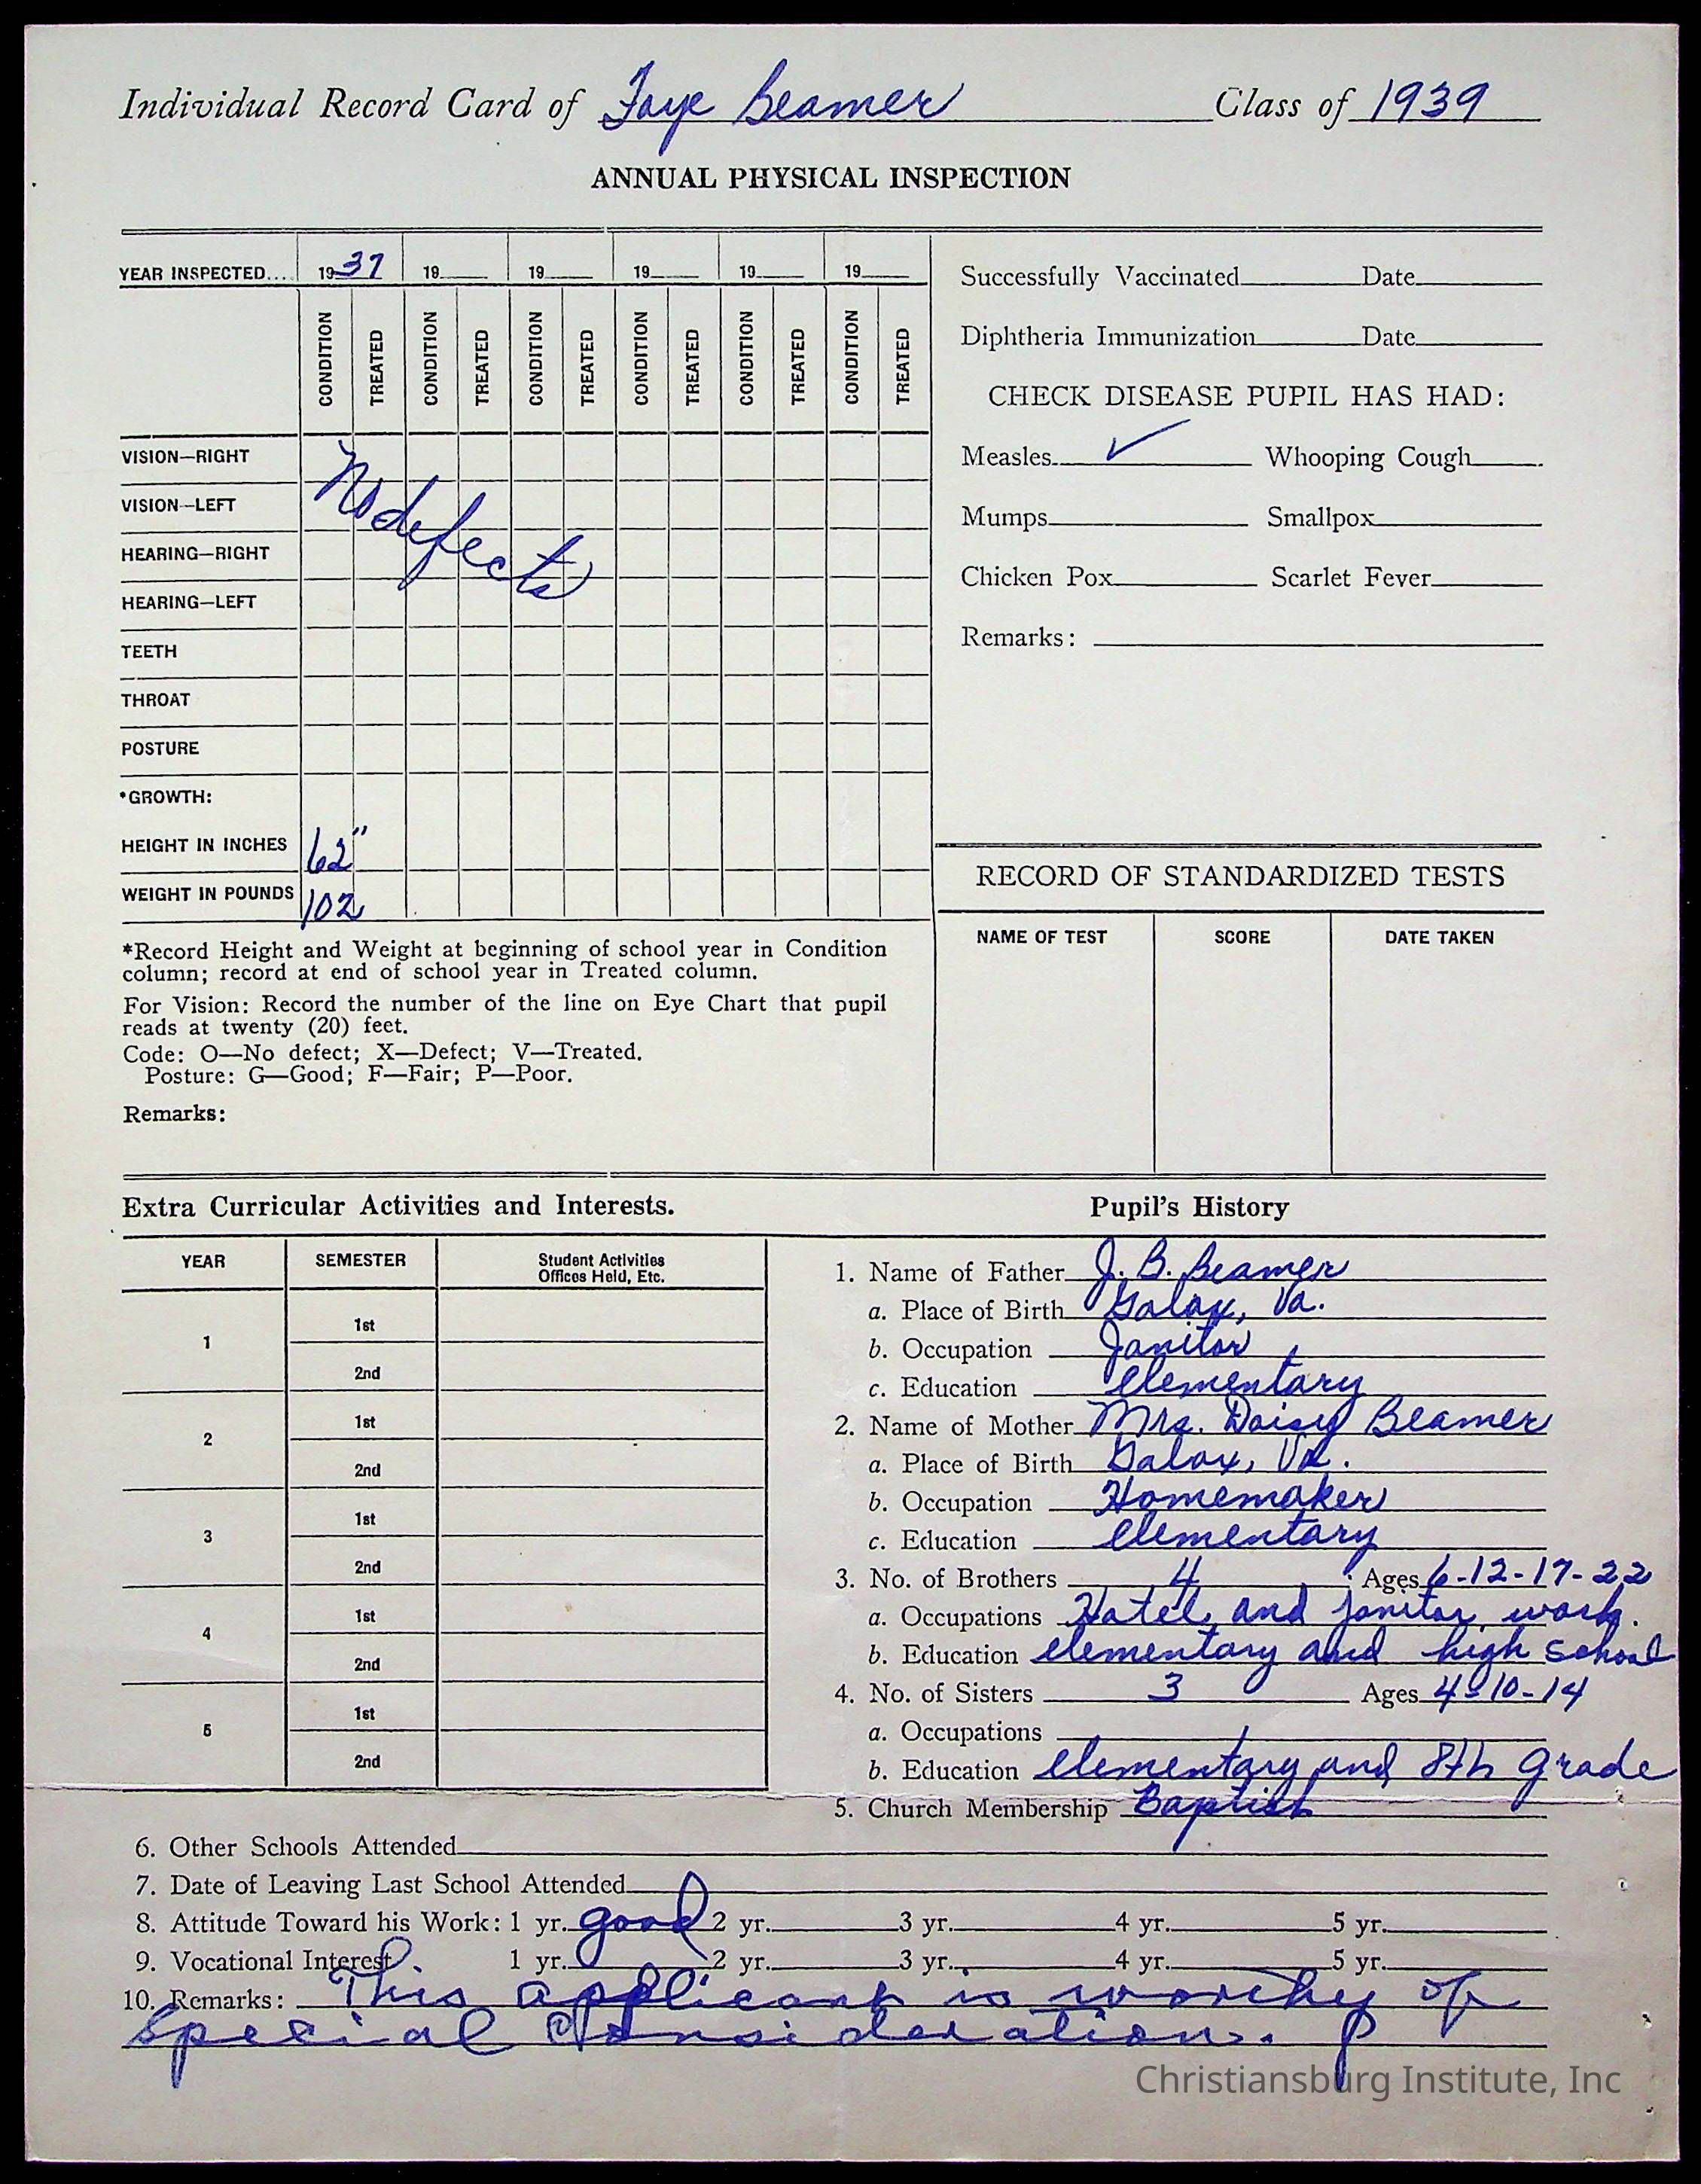 Individual Record Card of Faye Beamer Class of 1939
ANNUAL PHYSICAL INSPECTION
YEAR INSPECTED.... 1937 19 19 19 19 19
CONDITION TREATED CONDITION TREATED CONDITION TREATED CONDITION TREATED CONDITION TREATED CONDITION TREATED
VISION—RIGHT
VISION—LEFT
HEARING—RIGHT
HEARING—LEFT
No defects
TEETH
THROAT
POSTURE
*GROWTH:
HEIGHT IN INCHES 62"
WEIGHT IN POUNDS 102
*Record Height and Weight at beginning of school year in Condition
column; record at end of school year in Treated column.
For Vision: Record the number of the line on Eye Chart that pupil
reads at twenty (20) feet.
Code: O—No defect; X—Defect; V—Treated.
Posture: G—Good; F—Fair; P—Poor.
Remarks:
Successfully Vaccinated Date
Diphtheria Immunization Date
CHECK DISEASE PUPIL HAS HAD:
Measles ✓ Whooping Cough
Mumps Smallpox
Chicken Pox Scarlet Fever
Remarks:
RECORD OF STANDARDIZED TESTS
NAME OF TEST SCORE DATE TAKEN
Extra Curricular Activities and Interests.
YEAR SEMESTER Student Activities
Offices Held, Etc.
1 1st
2nd
2 1st
2nd
3 1st
2nd
4 1st
2nd
5 1st
2nd
Pupil's History
1. Name of Father J. B. Beamer
a. Place of Birth Galax, Va.
b. Occupation Janitor
c. Education Elementary
2. Name of Mother Mrs. Daisy Beamer
a. Place of Birth Galax, Va.
b. Occupation Homemaker
c. Education Elementary
3. No. of Brothers 4 Ages 6-12-17-22
a. Occupations Hotel and janitor work.
b. Education elementary and high school
4. No. of Sisters 3 Ages 4-10-14
a. Occupations
b. Education elementary and 8th grade
5. Church Membership Baptist
6. Other Schools Attended
7. Date of Leaving Last School Attended
8. Attitude Toward his Work: 1 yr. good 2 yr. 3 yr. 4 yr. 5 yr.
9. Vocational Interest 1 yr. 2 yr. 3 yr. 4 yr. 5 yr.
10. Remarks: This applicant is worthy of
special consideration.
Christiansburg Institute, Inc